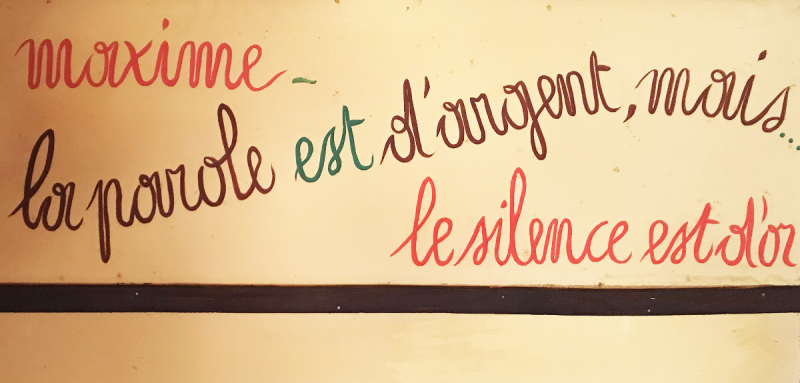 maxime -
la parole est d'argent, mais...
le silence est d'or